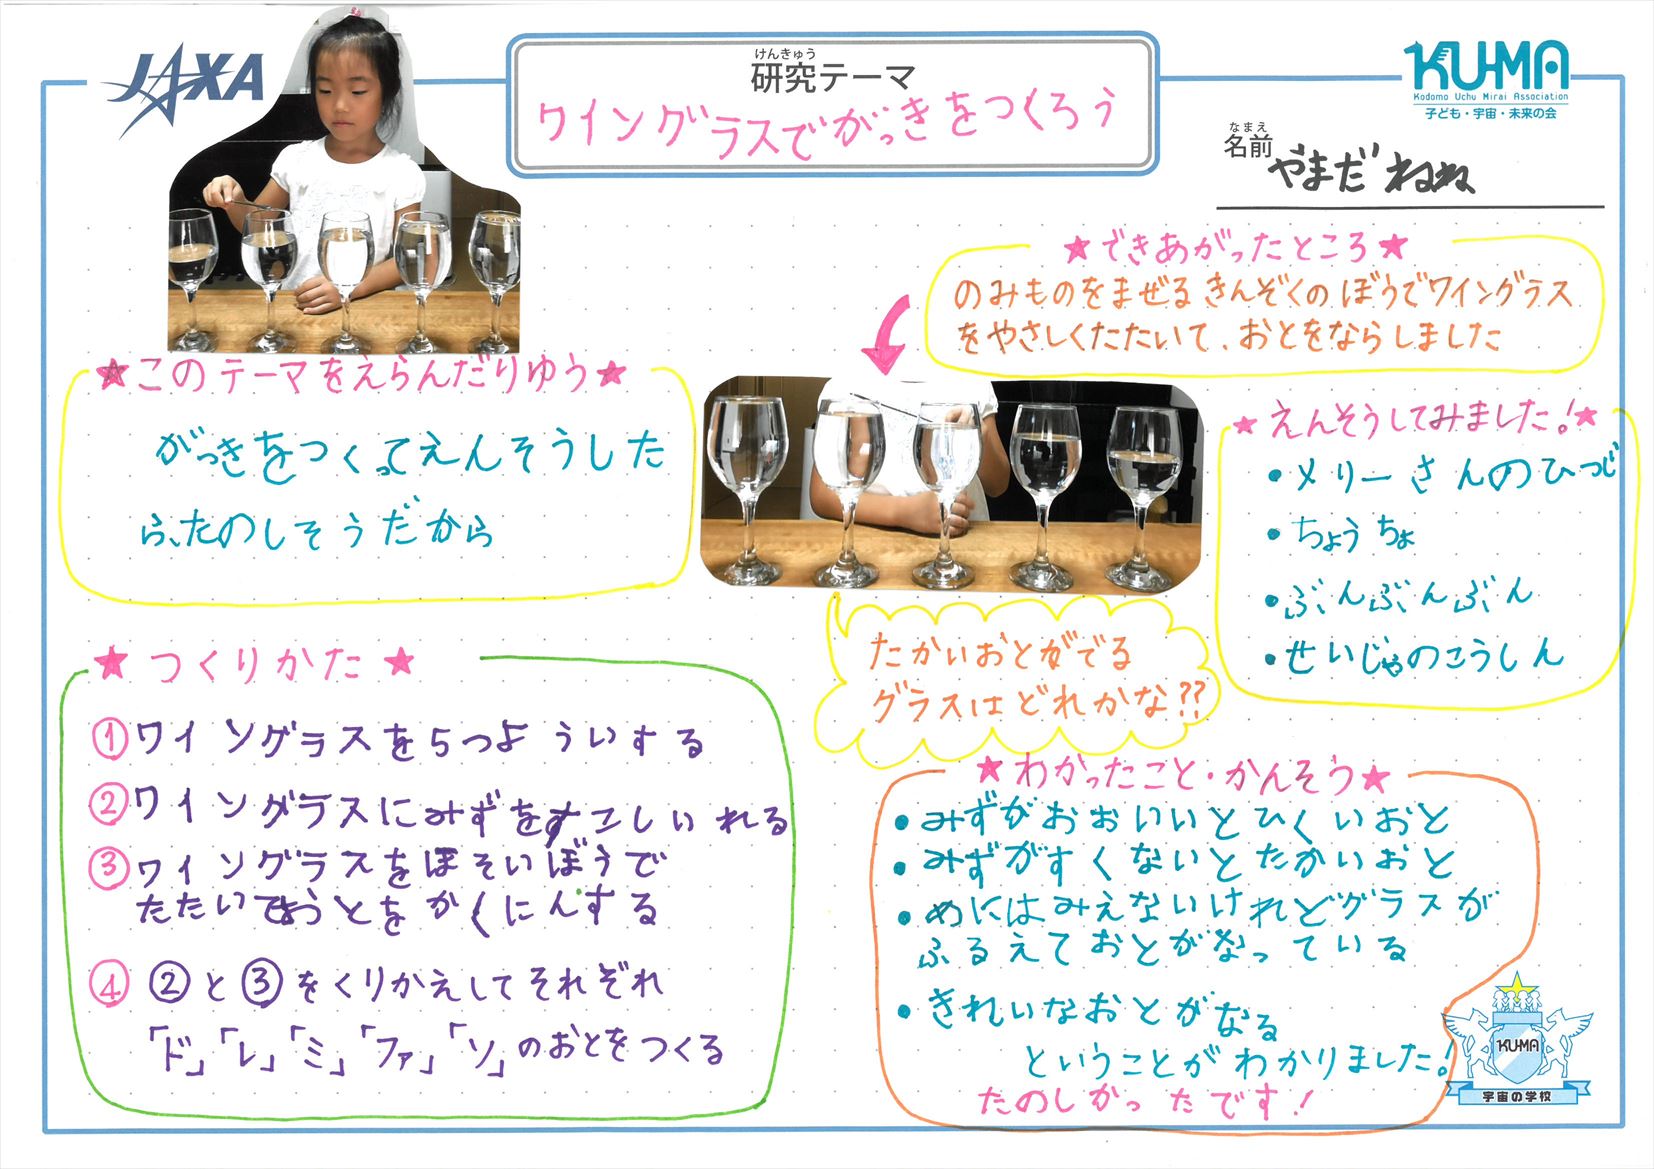 JAXA
けんきゅう
研究テーマ
ワイングラスでがっきをつくろう
KU-MA
Kodomo Uchu Mirai Association
子ども・宇宙・未来の会
なまえ
名前 やまだ ねね
★このテーマをえらんだりゆう★
がっきをつくってえんそうした
ら、たのしそうだから
★できあがったところ★
のみものをまぜるきんぞくのぼうでワイングラス
をやさしくたたいて、おとをならしました
★えんそうしてみました!★
・メリーさんのひつじ
・ちょうちょ
・ぶんぶんぶん
・せいじゃのこうしん
たかいおとがでる
グラスはどれかな??
★つくりかた★
①ワイングラスを5つよういする
②ワイングラスにみずをすこしいれる
③ワイングラスをほそいぼうで
たたいておとをかくにんする
④②と③をくりかえしてそれぞれ
「ド」「レ」「ミ」「ファ」「ソ」のおとをつくる
★わかったこと・かんそう★
・みずがおおいいとひくいおと
・みずがすくないとたかいおと
・めにはみえないけれどグラスが
ふるえておとがなっている
・きれいなおとがなる
ということがわかりました!
たのしかったです!
KU-MA
宇宙の学校